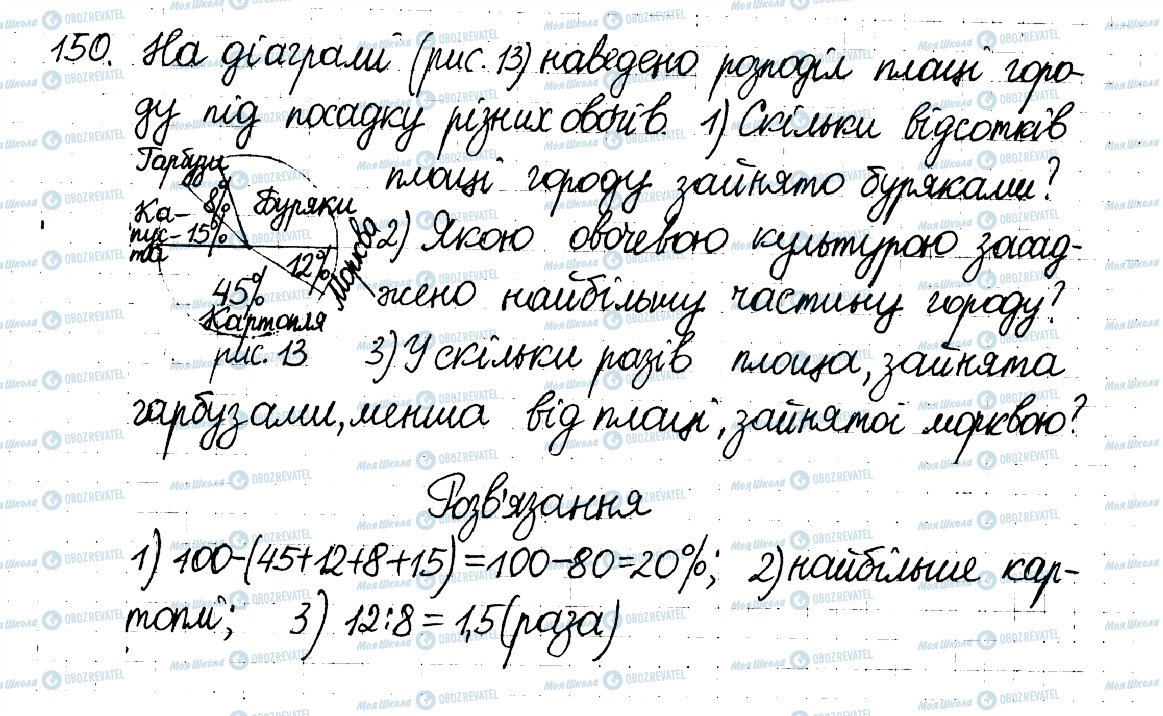 150. На діаграмі (рис. 13) наведено розподіл площі горо-
ду під посадку різних овочів. 1) Скільки відсотків
площі городу зайнято буряками?
Гарбузи
8%
Буряки
Ка-
пус-
та
15%
12%
Морква
45%
Картопля
рис. 13
2) Якою овочевою культурою засад-
жено найбільшу частину городу?
3) У скільки разів площа, зайнята
гарбузами, менша від площі, зайнятої морквою?
Розв'язання
1) 100-(45+12+8+15)=100-80=20%; 2) найбільше кар-
топлі; 3) 12:8=1,5 (раза)
Моя Школа OBOZREVATEL